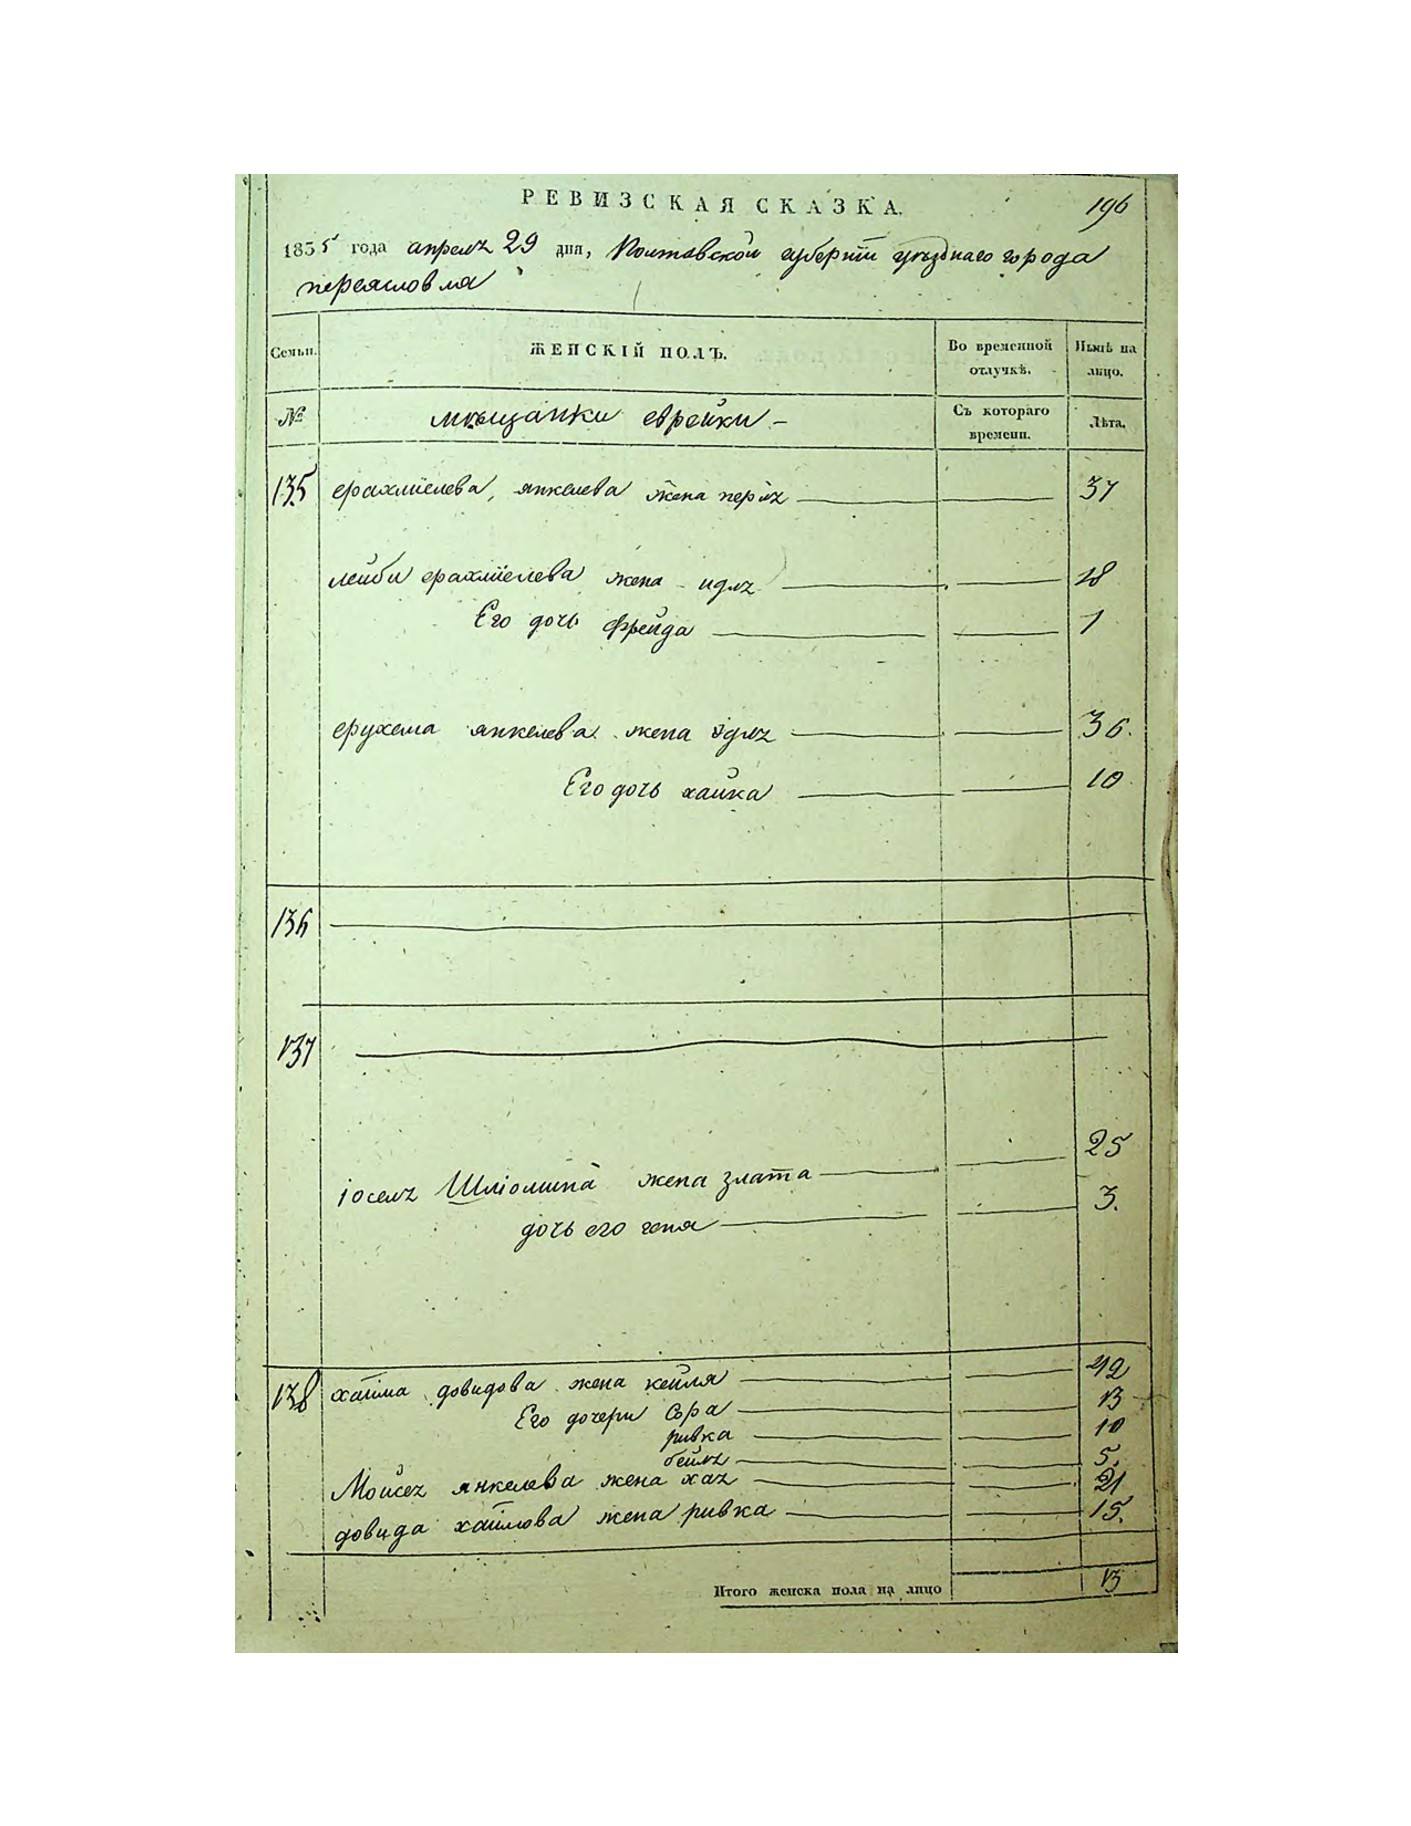 РЕВИЗСКАЯ СКАЗКА.
196
1835 года апреля 29 дня, Полтавской губернїи уѣзднаго города
переяславля
Семьи.
ЖЕНСКІЙ ПОЛЪ.
Во временной отлучкѣ.
Нынѣ на лицо.
№
мѣщанки еврейки –
Съ котораго времени.
Лѣта.
135 ерахмїелева, янкелева жена перля 37
лейби ерахмїелева жена идля 18
Его дочь фрейда 1
ерухема янкелева жена идля 36.
Его дочь хайка 10
136
137
іоселя Шліомина жена злата 25
дочь его геня 3.
138 хаїма довидова жена кейля 42
Его дочери Сора 13
ривка 10
бейля 5.
Мойсея янкелева жена хая 21
довида хаїмова жена ривка 15.
Итого женска пола на лицо 13